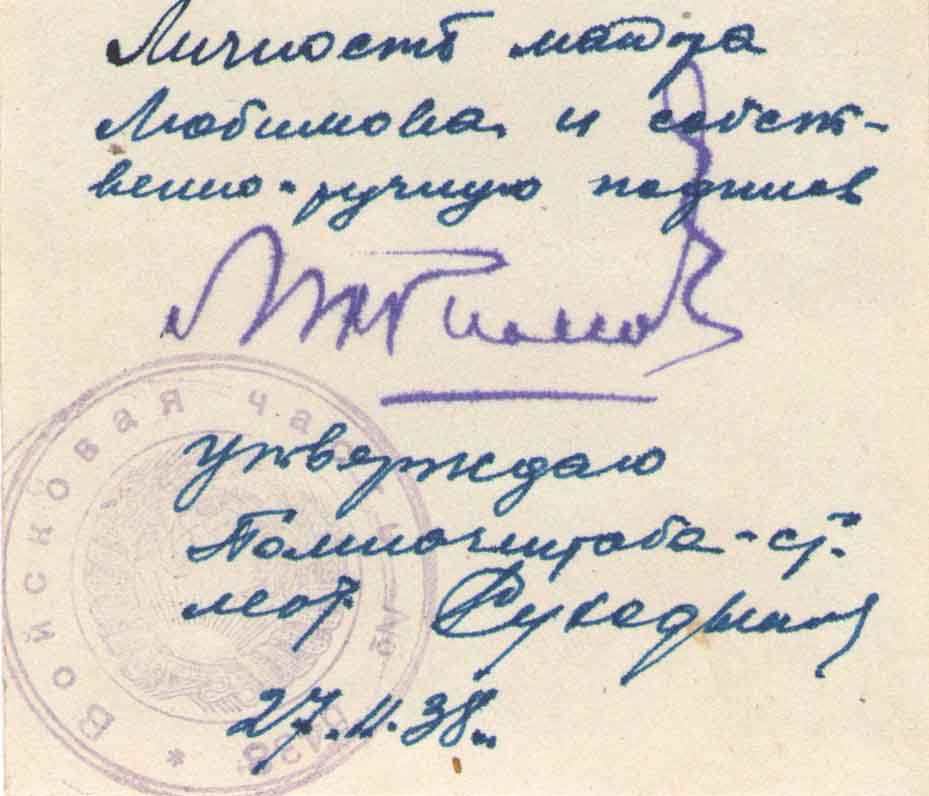 Личность майора
Любимова и собст-
венно-ручную подпись
Любимов
утверждаю
Помначштаба - ст.
лейт.
27.II.38г.
Войсковая часть №